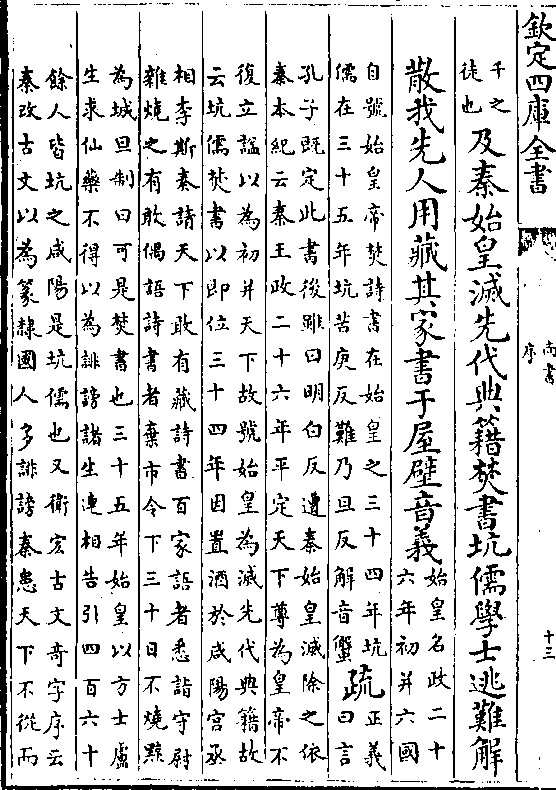 欽定四庫全書
尚書
序
十三
千之
徒也
及秦始皇滅先代典籍焚書坑儒學士逃難解
散我先人用藏其家書于屋壁音義
始皇名政二十
六年初并六國
自號始皇帝焚詩書在始皇之三十四年坑
儒在三十五年坑苦庚反難乃旦反解音蟹
疏
正義
曰言
孔子既定此書後雖曰明白反遭秦始皇滅除之依
秦本紀云秦王政二十六年平定天下尊為皇帝不
復立謚以為初并天下故號始皇為滅先代典籍故
云坑儒焚書以即位三十四年因置酒於咸陽宮丞
相李斯奏請天下敢有藏詩書百家語者悉詣守尉
雜燒之有敢偶語詩書者棄市令下三十日不燒黥
為城旦制曰可是焚書也三十五年始皇以方士盧
生求仙藥不得以為誹謗諸生連相告引四百六十
餘人皆坑之咸陽是坑儒也又衛宏古文奇字序云
秦改古文以為篆隸國人多誹謗秦患天下不從而